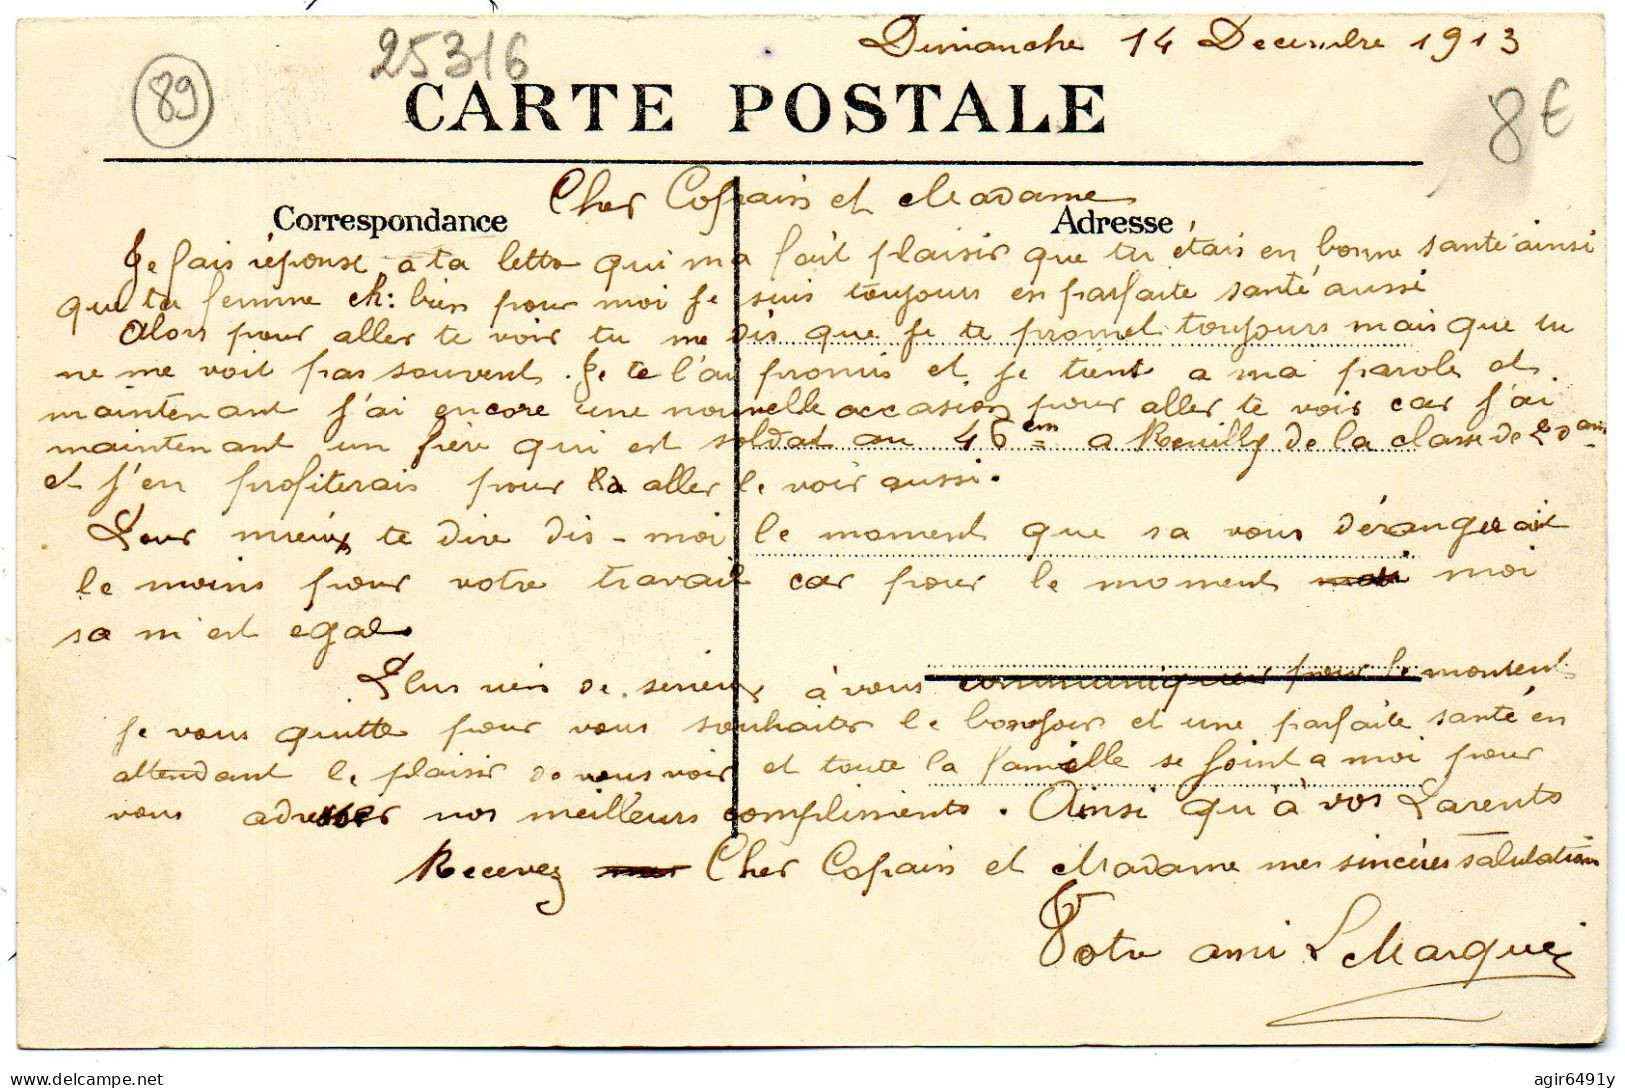 Dimanche 14 Decembre 1913
25316
89
CARTE POSTALE
8€
Cher Copain et Madame
Correspondance
Adresse
Je fais réponse a ta lettre qui m'a fait plaisir que tu étais en bonne santé ainsi
que ta femme eh: bien pour moi je suis toujours en parfaite santé aussi
Alors pour aller te voir tu me dis que je te promet toujours mais que tu
ne me voit pas souvent. Je te l'ai promis et je tient a ma parole et
maintenant j'ai encore une nouvelle occasion pour aller te voir car j'ai
maintenant un frère qui est soldat au 46em a Reuilly de la classe de 20 ans
et j'en profiterais pour aller le voir aussi.
Pour mieux te dire dis-moi le moment que sa vous dérangerait
le moins pour votre travail car pour le moment moi
sa m'est egal.
Plus rien de serieux à vous communiquer pour le moment
je vous quitte pour vous souhaiter le bonjour et une parfaite santé en
attendant le plaisir de vous voir et toute la famille se joint a moi pour
vous adresser nos meilleurs compliments. Ainsi qu'à vos Parents
Recevez Cher Copain et Madame mes sincères salutations
Votre ami L Marquis
delcampe.net
agir6491y